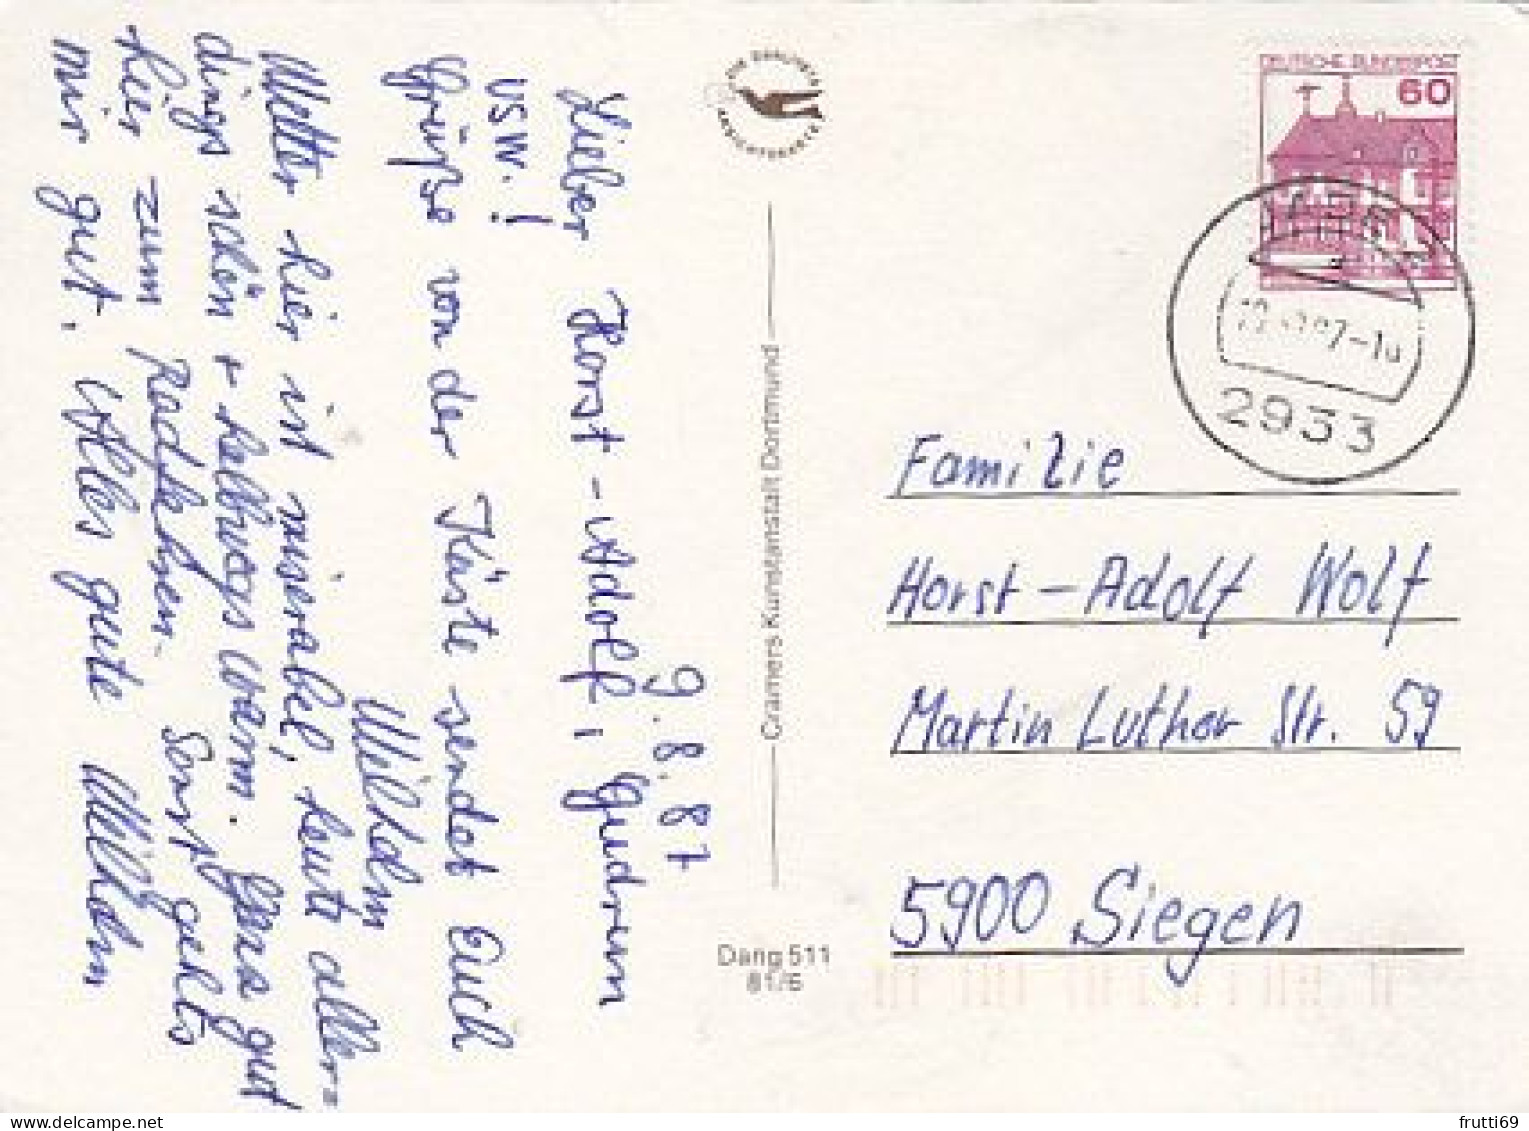 9.8.87
Lieber Horst-Adolf, Gudrun
usw.!
Grüße von der Küste sendet Euch
Wilhelm
Wetter hier ist miserabel, heute aller=
dings schön + halbwegs warm. Ganz gut
hier zum Radfahren. Sonst gehts
mir gut. Alles gute Wilhelm
DIE QUALITÄTS
ANSICHTSKARTE
Cramers Kunstanstalt Dortmund
Dang 511
81/6
DEUTSCHE BUNDESPOST
60
2933
Familie
Horst-Adolf Wolf
Martin Luther Str. 59
5900 Siegen
frutti69